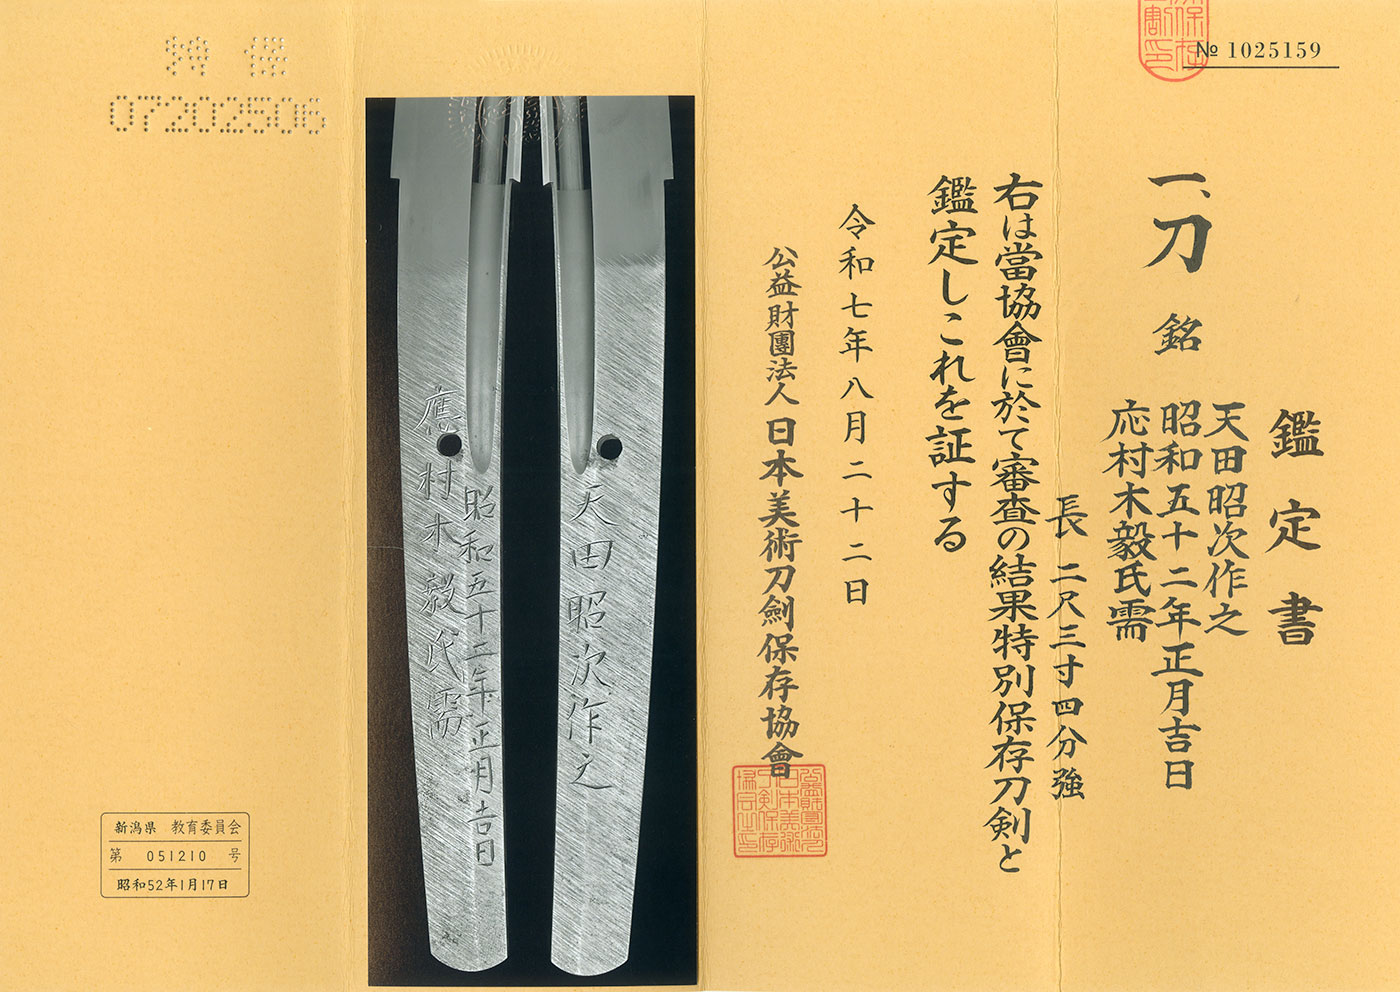 № 1025159
鑑定書
一、刀 銘
天田昭次作之
昭和五十二年正月吉日
応村木毅氏需
長 二尺三寸四分強
右は當協會に於て審査の結果特別保存刀剣と
鑑定しこれを証する
令和七年八月二十二日
公益財團法人 日本美術刀劍保存協會
天田昭次作之
昭和五十二年正月吉日
應村木毅氏需
特保
07202506
新潟県 教育委員会
第 051210 号
昭和52年1月17日